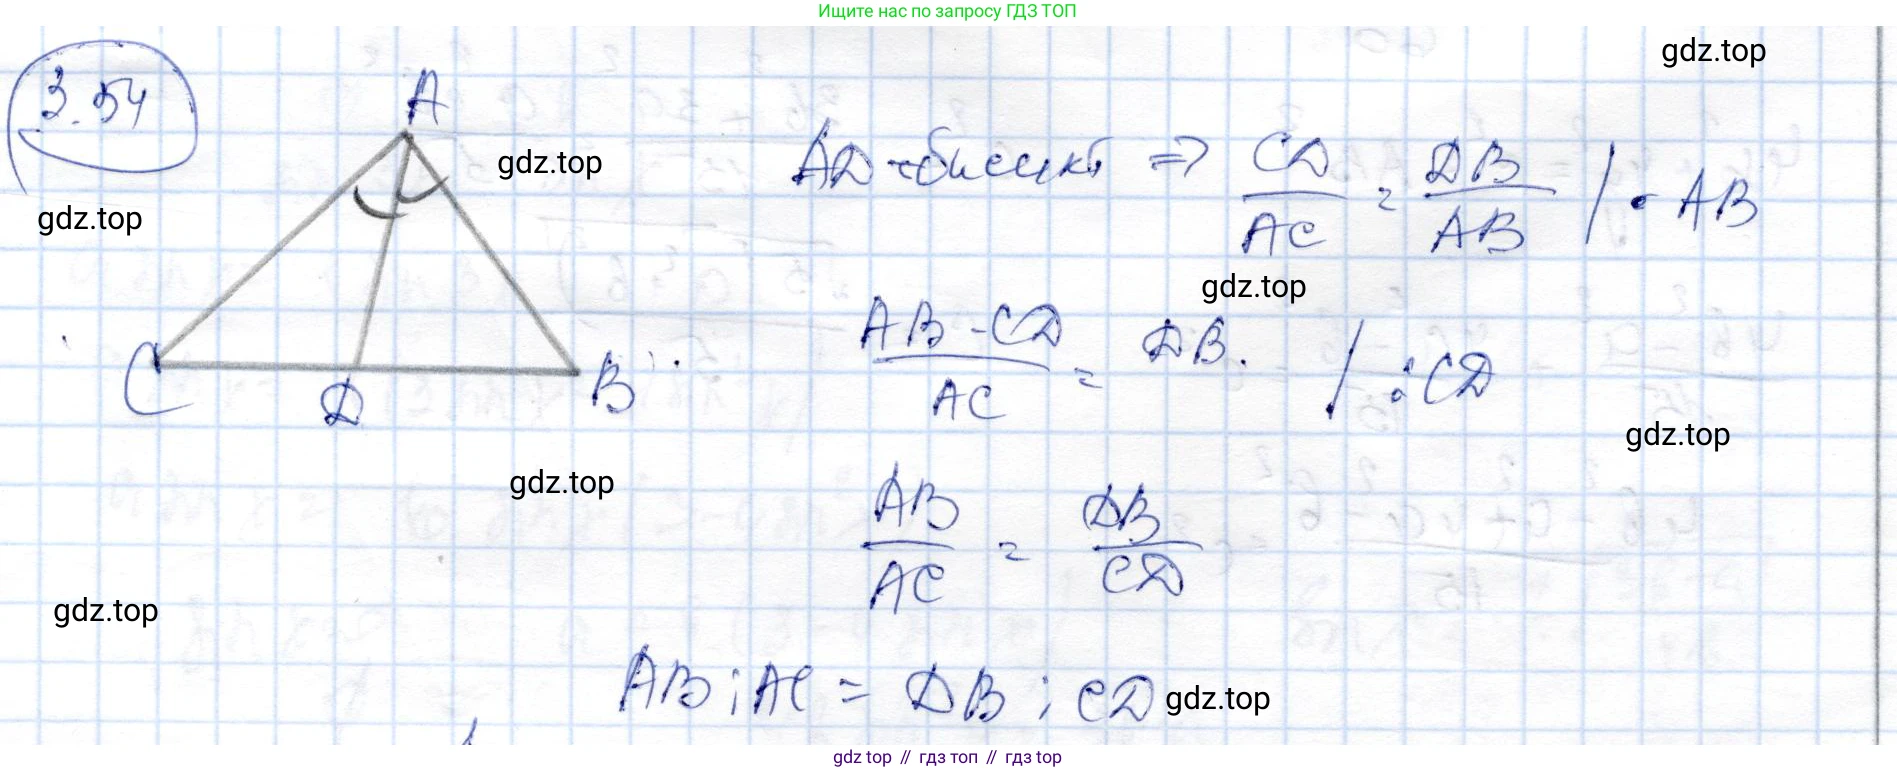 Ищите нас по запросу ГДЗ ТОП
gdz.top
3.54
A
gdz.top
AD - биссект ⇒ CD/AC = DB/AB | · AB
gdz.top
gdz.top
AB · CD/AC = DB. | : CD
C
D
B
gdz.top
gdz.top
AB/AC = DB/CD
gdz.top
AB : AC = DB : CD
gdz.top
gdz top // гдз топ // гдз top